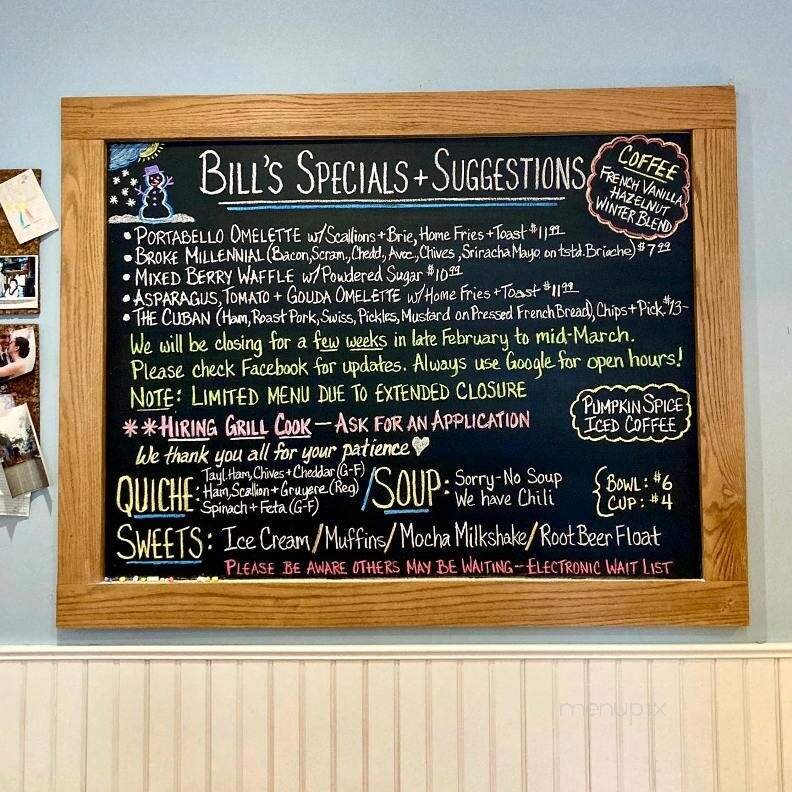 BILL'S SPECIALS + SUGGESTIONS
COFFEE
FRENCH VANILLA
HAZELNUT
WINTER BLEND
• PORTABELLO OMELETTE w/ Scallions + Brie, Home Fries + Toast $11.99
• BROKE MILLENNIAL (Bacon, Scram., Chedd., Avoc., Chives, Sriracha Mayo on tstd. Brioche) $7.99
• MIXED BERRY WAFFLE w/ Powdered Sugar $10.99
• ASPARAGUS, TOMATO + GOUDA OMELETTE w/ Home Fries + Toast $11.99
• THE CUBAN (Ham, Roast Pork, Swiss, Pickles, Mustard on Pressed French Bread), Chips + Pick. $13-
We will be closing for a few weeks in late February to mid-March.
Please check Facebook for updates. Always use Google for open hours!
NOTE: LIMITED MENU DUE TO EXTENDED CLOSURE
**HIRING GRILL COOK — ASK FOR AN APPLICATION
PUMPKIN SPICE
ICED COFFEE
We thank you all for your patience
QUICHE: Tayl. Ham, Chives + Cheddar (G-F)
Ham, Scallion + Gruyere (Reg)
Spinach + Feta (G-F)
/SOUP: Sorry-No Soup
We have Chili
{BOWL: $6
CUP: $4
SWEETS: Ice Cream / Muffins / Mocha Milkshake / Root Beer Float
PLEASE BE AWARE OTHERS MAY BE WAITING -- ELECTRONIC WAIT LIST
menupix